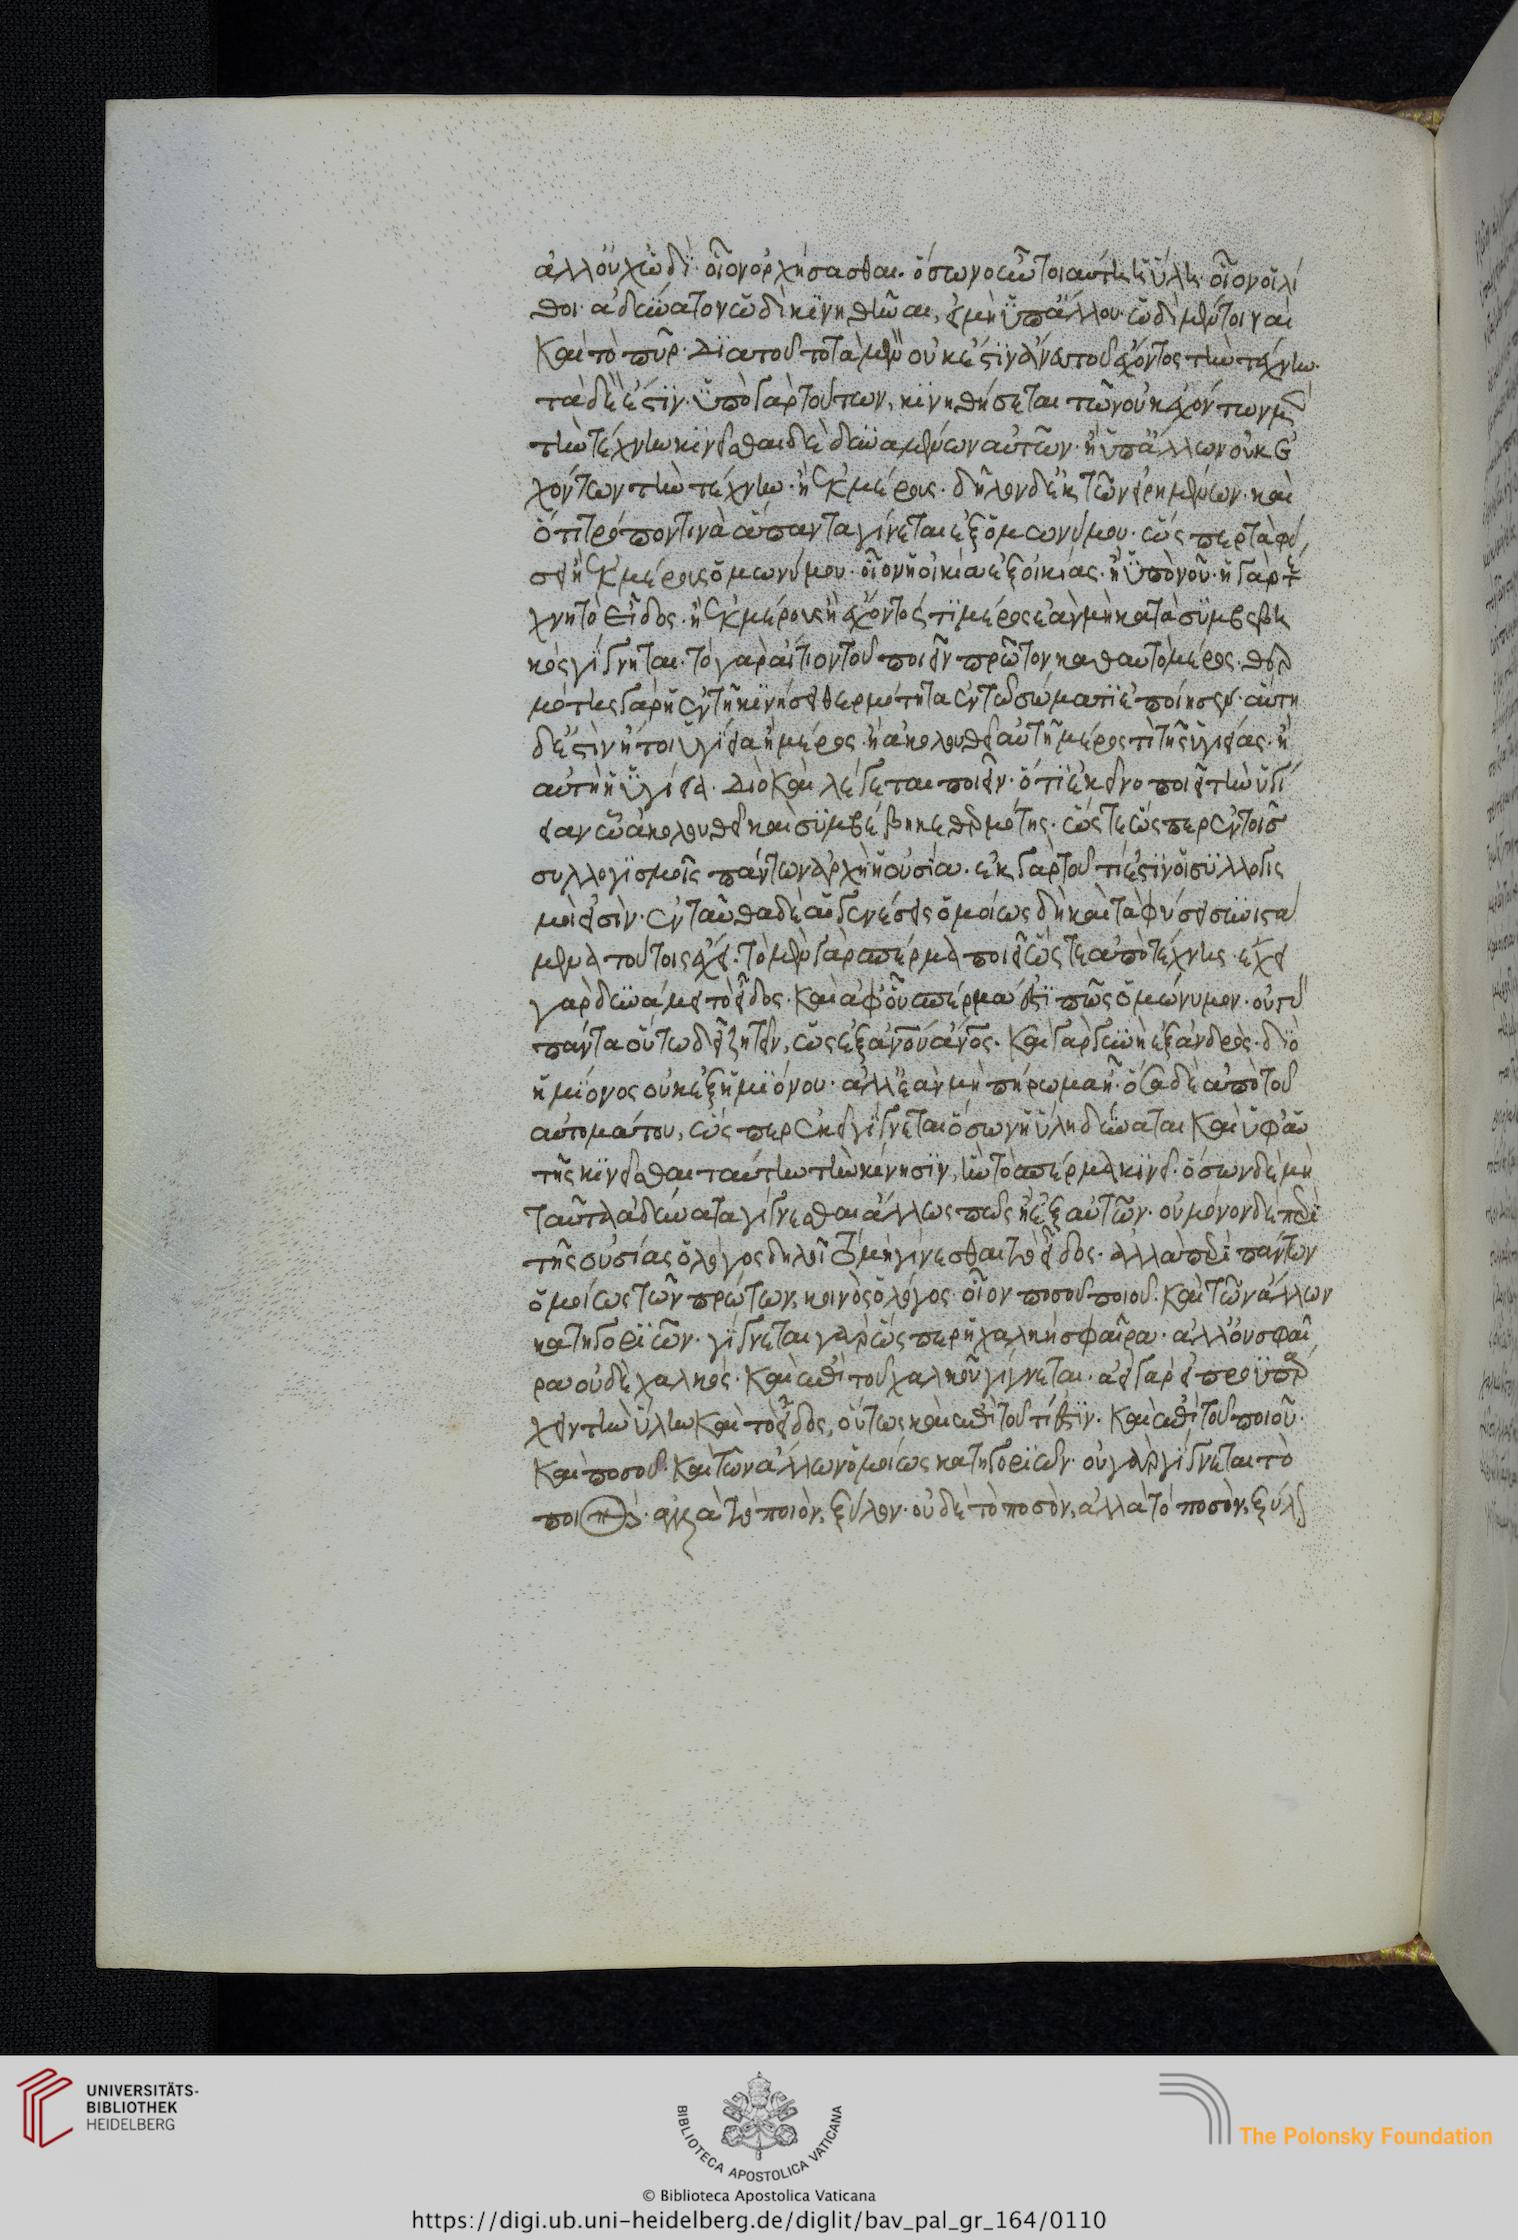 ἀλλ' οὐχ ὡδὶ· οἷον ὀρχήσασθαι. ὅσων οὖν τοιαύτη ἡ ὕλη· οἷον οἱ λί
θοι· ἀδύνατον ὡδὶ κινηθῆναι, εἰ μὴ ὑπ' ἄλλου· ὡδὶ μέντοι ναὶ
καὶ τὸ πῦρ. διὰ τοῦτο τὰ μὲν οὐκ ἔστιν ἄνευ τοῦ ἔχοντος τὴν τέχνην.
τὰ δὲ ἔστιν· ὑπὸ γὰρ τούτων, κινηθήσεται τῶν οὐκ ἐχόντων μὲν
τὴν τέχνην κινεῖσθαι δὲ δυναμένων αὐτῶν· ἢ ὑπ' ἄλλων οὐκ ἐ
χόντων τὴν τέχνην· ἢ ἐκ μέρους. δῆλον δ' ἐκ τῶν εἰρημένων· καὶ
ὅτι τρόπον τινὰ ἅπαντα γίνεται ἐξ ὁμωνύμου· ὥσπερ τὰ φύ
σει ἢ ἐκ μέρους ὁμωνύμου· οἷον ἡ οἰκία ἐξ οἰκίας· ἢ ὑπὸ νοῦ· ἡ γὰρ τέ
χνη τὸ εἶδος· ἢ ἐκ μέρους ἢ ἔχοντός τι μέρος ἐὰν μὴ κατὰ συμβεβη
κὸς γίγνηται. τὸ γὰρ αἴτιον τοῦ ποιεῖν πρῶτον καθ' αυτὸ μέρος. θερ
μότης γὰρ ἡ ἐν τῇ κινήσει θερμότητα ἐν τῷ σώματι ἐποίησεν. αὕτη
δ' ἐστὶν ἤτοι ὑγίεια ἢ μέρος· ἢ ἀκολουθεῖ αὐτῇ μέρος τι τῆς ὑγιείας· ἢ
αὐτὴ ἡ ὑγίεια. διὸ καὶ λέγεται ποιεῖν· ὅτι ἐκεῖνο ποιεῖ τὴν ὑγί
ειαν ᾧ ἀκολουθεῖ καὶ συμβέβηκε θερμότης. ὥστε ὥσπερ ἐν τοῖς
συλλογισμοῖς πάντων ἀρχὴ ἡ οὐσία. ἐκ γὰρ τοῦ τί ἐστιν οἱ συλλογισ
μοί εἰσιν· ἐνταῦθα δὲ αἱ γενέσεις ὁμοίως δὴ καὶ τὰ φύσει συνιστά
μενα τούτοις ἔχει. τὸ μὲν γὰρ σπέρμα ποιεῖ ὥστε ἀπὸ τέχνης· ἔχει
γὰρ δυνάμει τὸ εἶδος. καὶ ἀφ' οὗ σπέρμα ἐστί πως ὁμώνυμον· οὐ γὰρ
πάντα οὕτω δεῖ ζητεῖν, ὡς ἐξ ἀνου ἄνος. καὶ γὰρ γυνὴ ἐξ ἀνδρός· διὸ
ἡμίονος οὐκ ἐξ ἡμιόνου· ἀλλ' ἐὰν μὴ πήρωμα ᾖ. ὅσα δὲ ἀπὸ τοῦ
αὐτομάτου, ὥσπερ ἐκεῖ γίγνεται ὅσων ἡ ὕλη δύναται καὶ ὑφ' αὑ
τῆς κινεῖσθαι ταύτην τὴν κίνησιν, ἣν τὸ σπέρμα κινεῖ. ὅσων δὲ μὴ
ταῦτα ἀδύνατα γίγνεσθαι ἄλλως πως ἢ ἐξ αὐτῶν. οὐ μόνον δὲ περὶ
τῆς οὐσίας ὁ λόγος δηλοῖ τὸ μὴ γίνεσθαι τὸ εἶδος. ἀλλὰ περὶ πάντων
ὁμοίως τῶν πρώτων, κοινὸς ὁ λόγος· οἷον ποσοῦ ποιοῦ. καὶ τῶν ἄλλων
κατηγοριῶν. γίγνεται γὰρ ὥσπερ ἡ χαλκῆ σφαῖρα· ἀλλ' οὐ σφαῖ
ρα οὐδὲ χαλκός. καὶ ἐπὶ τοῦ χαλκοῦ γίγνεται· ἀεὶ γὰρ εἰ προϋπάρ
χειν τὴν ὕλην καὶ τὸ εἶδος, οὕτως καὶ ἐπὶ τοῦ τί ἐστιν. καὶ ἐπὶ τοῦ ποιοῦ.
καὶ ποσοῦ. καὶ τῶν ἄλλων ὁμοίως κατηγοριῶν· οὐ γὰρ γίγνεται τὸ
ποιὸν. ἀλλὰ τὸ ποιὸν, ξύλον· οὐδὲ τὸ ποσὸν, ἀλλὰ τὸ ποσὸν, ξύλον
UNIVERSITÄTS-
BIBLIOTHEK
HEIDELBERG
BIBLIOTECA APOSTOLICA VATICANA
The Polonsky Foundation
© Biblioteca Apostolica Vaticana
https://digi.ub.uni-heidelberg.de/diglit/bav_pal_gr_164/0110